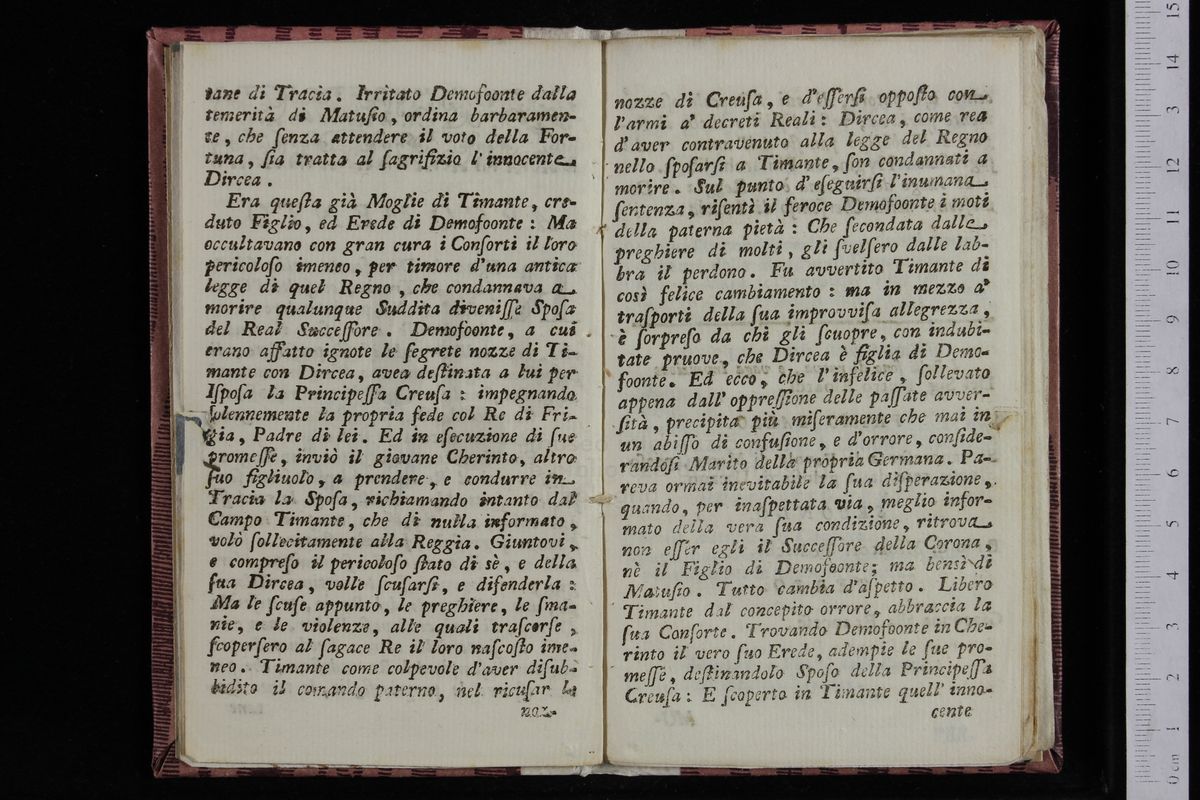 tane di Tracia. Irritato Demofoonte dalla
temerità di Matusio, ordina barbaramen-
te, che ſenza attendere il voto della For-
tuna, ſia tratta al ſagrifizio l'innocente
Dircea.
Era queſta già Moglie di Timante, cre-
duto Figlio, ed Erede di Demofoonte: Ma
occultavano con gran cura i Conſorti il loro
pericoloſo imeneo, per timore d'una antica
legge di quel Regno, che condannava a
morire qualunque Suddita diveniſſe Spoſa
del Real Succeſſore. Demofoonte, a cui
erano affatto ignote le ſegrete nozze di Ti-
mante con Dircea, avea deſtinata a lui per
Iſpoſa la Principeſſa Creuſa: impegnando
ſolennemente la propria fede col Re di Fri-
gia, Padre di lei. Ed in eſecuzione di ſue
promeſſe, inviò il giovane Cherinto, altro
ſuo figliuolo, a prendere, e condurre in
Tracia la Spoſa, richiamando intanto dal
Campo Timante, che di nulla informato,
volò ſollecitamente alla Reggia. Giuntovi,
e compreſo il pericoloſo ſtato di sè, e della
ſua Dircea, volle ſcuſarſi, e difenderla:
Ma le ſcuſe appunto, le preghiere, le ſma-
nie, e le violenze, alle quali traſcorſe,
ſcoperſero al ſagace Re il loro naſcoſto ime-
neo. Timante come colpevole d'aver diſub-
bidito il comando paterno, nel ricuſar le
noz-
nozze di Creuſa, e d'eſſerſi oppoſto con
l'armi a' decreti Reali: Dircea, come rea
d'aver contravenuto alla legge del Regno
nello ſpoſarſi a Timante, ſon condannati a
morire. Sul punto d'eſeguirſi l'inumana
ſentenza, riſentì il feroce Demofoonte i moti
della paterna pietà: Che ſecondata dalle
preghiere di molti, gli ſvelſero dalle lab-
bra il perdono. Fu avvertito Timante di
così felice cambiamento: ma in mezzo a'
traſporti della ſua improvviſa allegrezza,
è ſorpreſo da chi gli ſcuopre, con indubi-
tate pruove, che Dircea è figlia di Demo-
foonte. Ed ecco, che l'infelice, ſollevato
appena dall'oppreſſione delle paſſate avver-
ſità, precipita più miſeramente che mai in
un abiſſo di confuſione, e d'orrore, conſide-
randoſi Marito della propria Germana. Pa-
reva ormai inevitabile la ſua diſperazione,
quando, per inaſpettata via, meglio infor-
mato della vera ſua condizione, ritrova
non eſſer egli il Succeſſore della Corona,
nè il Figlio di Demofoonte; ma bensì di
Matuſio. Tutto cambia d'aſpetto. Libero
Timante dal concepito orrore, abbraccia la
ſua Conſorte. Trovando Demofoonte in Che-
rinto il vero ſuo Erede, adempie le ſue pro-
meſſe, deſtinandolo Spoſo della Principeſſa
Creuſa: E ſcoperto in Timante quell'inno-
cente
0 cm 1 2 3 4 5 6 7 8 9 10 11 12 3 14 15